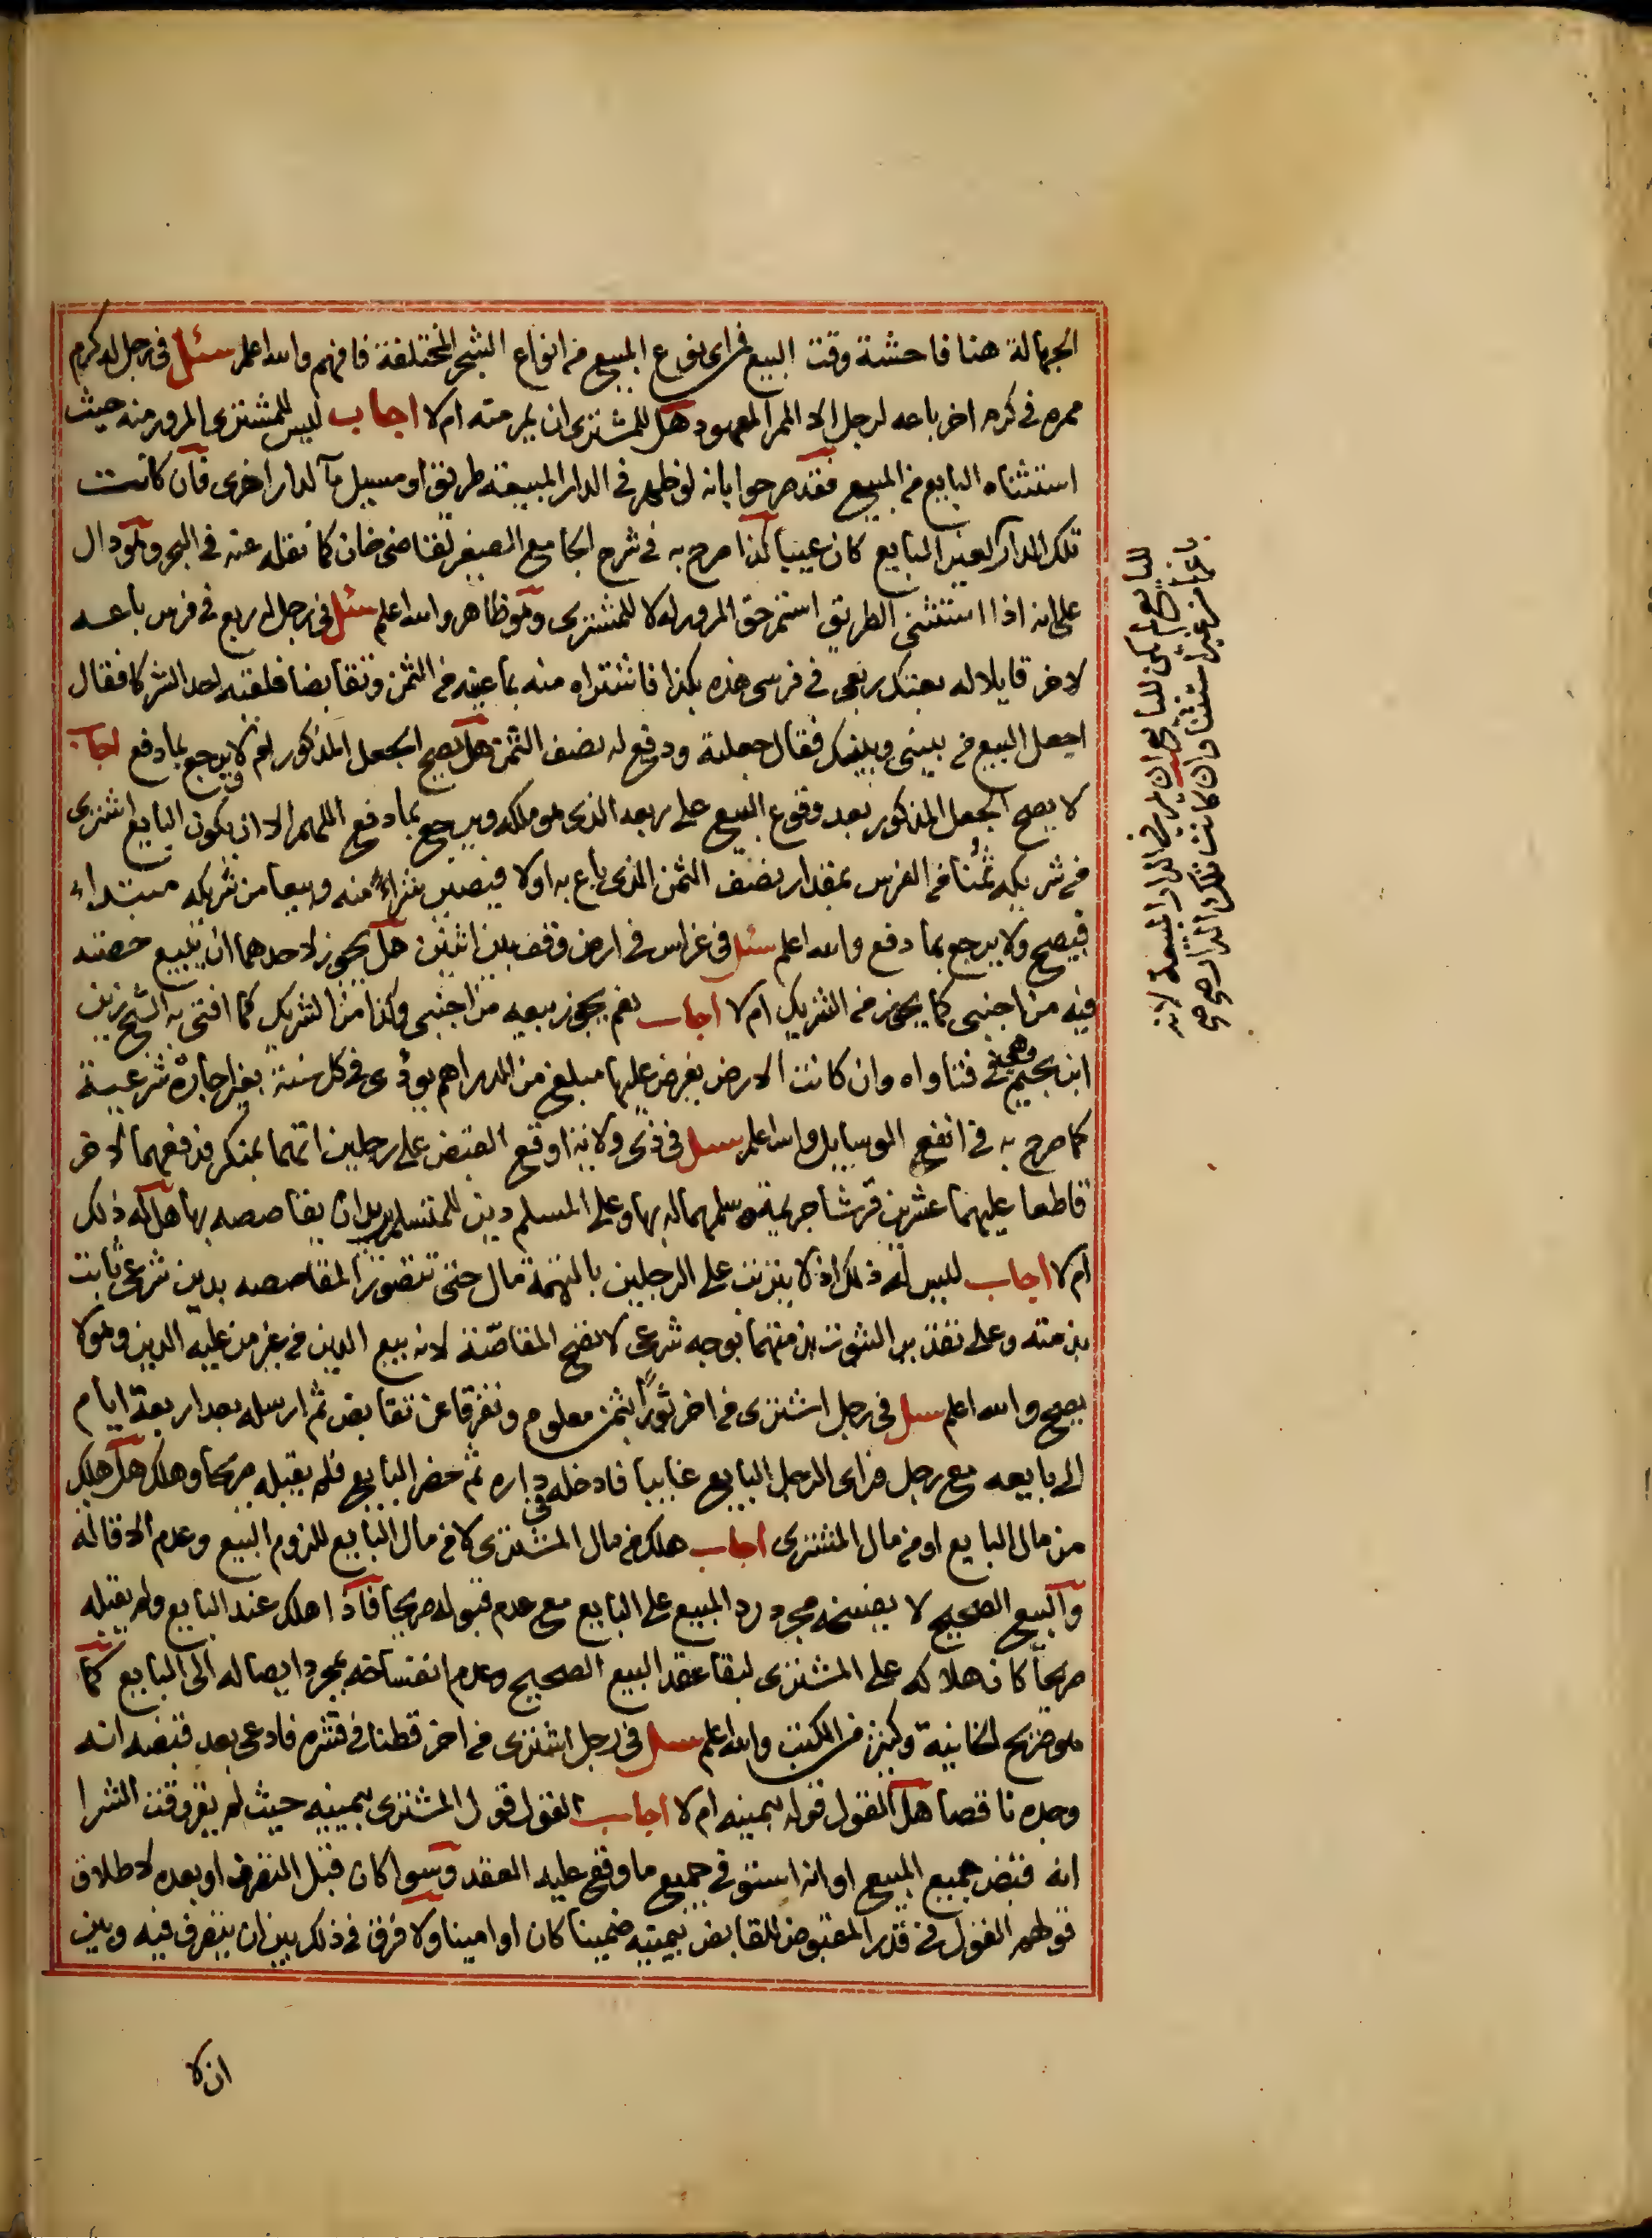 الجهالة هنا فاحشة وقت البيع في اى نوع المبيع من انواع الشجر المختلفة فافهم والله اعلم سئل فى رجل له كرم
ممره فى كرم اخر باعه لرجل الا الممر المعهود هل للمشترى ان يمر منه ام لا اجاب ليس للمشترى المرور منه حيث
استثناه البايع من المبيع فقد صرحوا بانه لو ظهر فى الدار المبيعة طريق او مسيل مآ لدار اخرى فان كانت
تلك الدار لغير البايع كان عيبا كذا صرح به فى شرح الجامع الصغير لقاضى خان كما نقله عنه فى البحر وهو دال
على انه اذا استثنى الطريق استمر حق المرور له لا للمشترى وهو ظاهر والله اعلم سئل فى رجل له ربع فى فرس باعه
لاخر قايلا له بعتك ربعى فى فرسى هذه بكذا فاشتراه منه بما عينه من الثمن وتقابضا فلقته احد الشركا فقال
اجعل البيع من بينى وبينك فقال جعلته ودفع له نصف الثمن هل يصح الجعل المذكور ام لا ويرجع بما دفع اجاب
لا يصح الجعل المذكور بعد وقوع البيع على ربعه الذى هو ملكه ويرجع بما دفع اللهم الا ان يكون البايع اشترى
من شريكه ثمنا من الفرس بمقدار نصف الثمن الذى باع به اولا فيصير شراء منه وبيعا من شريكه مبتداء
فيصح ولا يرجع بما دفع والله اعلم سئل فى غراس فى ارض وقف بين اثنين هل يجوز لاحدهما ان يبيع حصته
فيه من اجنبى كما يجوز من الشريك ام لا اجاب نعم يجوز بيعه من اجنبى وكذا من الشريك كما افتى به الشيخ زين
ابن نجيم وهى فى فتاواه وان كانت الارض يفرض عليها مبلغ من الدراهم يودى فى كل سنة بغير اجارة شرعية
كما صرح به فى انفع الوسايل والله اعلم سئل فى ذى ولاية اوقع القبض على رجلين اتهما بمنكر فدفعهما لاخر
قاطعا عليهما عشرين قرشا جريمة وسلمهما له بها وعلى المسلم دين للمتسلم يريد ان يقاصصه بها هل له ذلك
ام لا اجاب ليس له ذلك اذ لا يترتب على الرجلين بالتهمة مال حتى تتصور المقاصصه بدين شرعى ثابت
بذمته وعلى تقدير الثبوت بذمتهما بوجه شرعى لا تصح المقاصصة لانه بيع الدين من غير من عليه الدين وهو لا
يصح والله اعلم سئل فى رجل اشترى من اخر ثورا بثمن معلوم وتفرقا عن تقابض ثم ارسله بعد اربعة ايام
الى بايعه مع رجل فراى الرجل البايع غايبا فادخله فى داره ثم حضر البايع فلم يقبله صريحا وهلك هل هلك
من مال البايع او من مال المشترى اجاب هلك من مال المشترى لا من مال البايع للزوم البيع وعدم الاقالة
والبيع الصحيح لا يفسخه مجرد رد المبيع على البايع مع عدم قبوله صريحا فاذا هلك عند البايع ولم يقبله
صريحا كان هلاكه على المشترى لبقا عقد البيع الصحيح وعدم انفساخه بمجرد ايصاله الى البايع كما
هو صريح الخانية وكثير من الكتب والله اعلم سئل فى رجل اشترى من اخر قطنا فى قشره فادعى بعد قبضه انه
وجده ناقصا هل القول قوله بيمينه ام لا اجاب القول قول المشترى بيمينه حيث لم يقر وقت الشرا
انه قبض جميع المبيع او انه استوفى جميع ما وقع عليه العقد وسوا كان قبل التصرف او بعده لاطلاق
قولهم القول فى قدر المقبوض للقابض بيمينه ضمينا كان او امينا ولا فرق فى ذلك بين ان يتصرف فيه وبين
ان لا
للبايع لم يكن للبايع ان يمر فى الدار المبيعة لانه
باعها من غير استثنا وان كانت تلك الدار